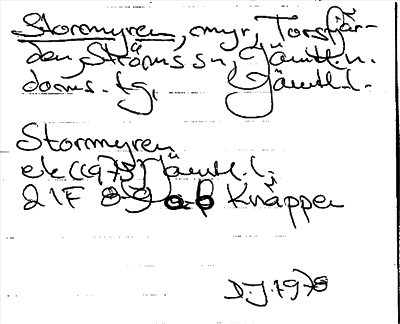 Stormyren, myr, Torsfjär-
den, Ströms sn, Jämtl. n.
doms. fg, Jämtl. l.
Stormyren
ek (1975) Jämtl. l.
21F ab Knäppen
DJ 1978